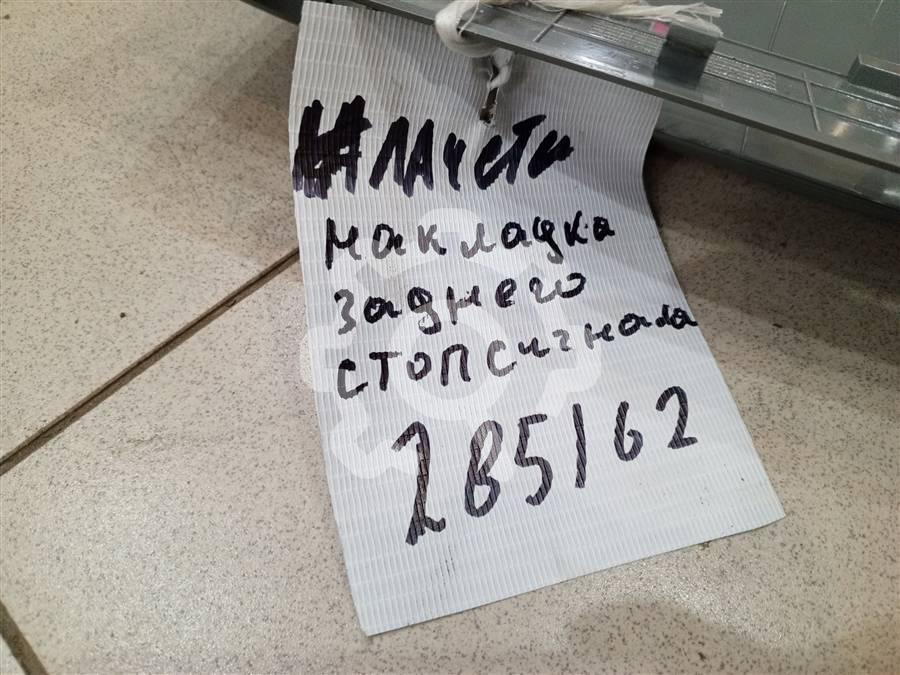 на лачети
накладка
заднего
стопсигнала
285162